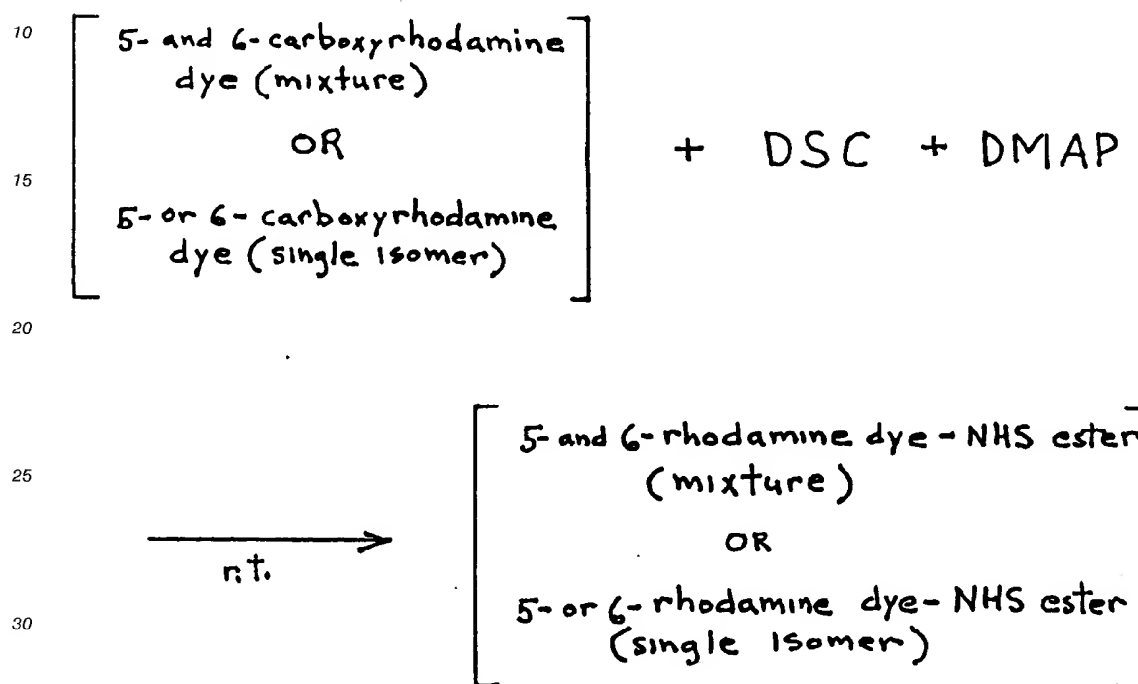 10
5- and 6-carboxyrhodamine
dye (mixture)
OR
15
5- or 6-carboxyrhodamine
dye (single isomer)
+ DSC + DMAP
20
r.t.
5- and 6-rhodamine dye-NHS ester
(mixture)
25
OR
30
5- or 6-rhodamine dye-NHS ester
(single isomer)